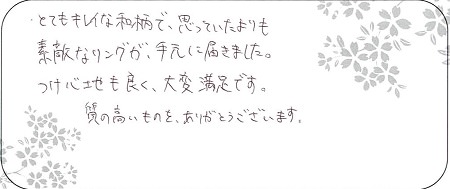 ・とてもキレイな和柄で、思っていたよりも
素敵なリングが、手元に届きました。
つけ心地も良く、大変満足です。
質の高いものを、ありがとうございます。